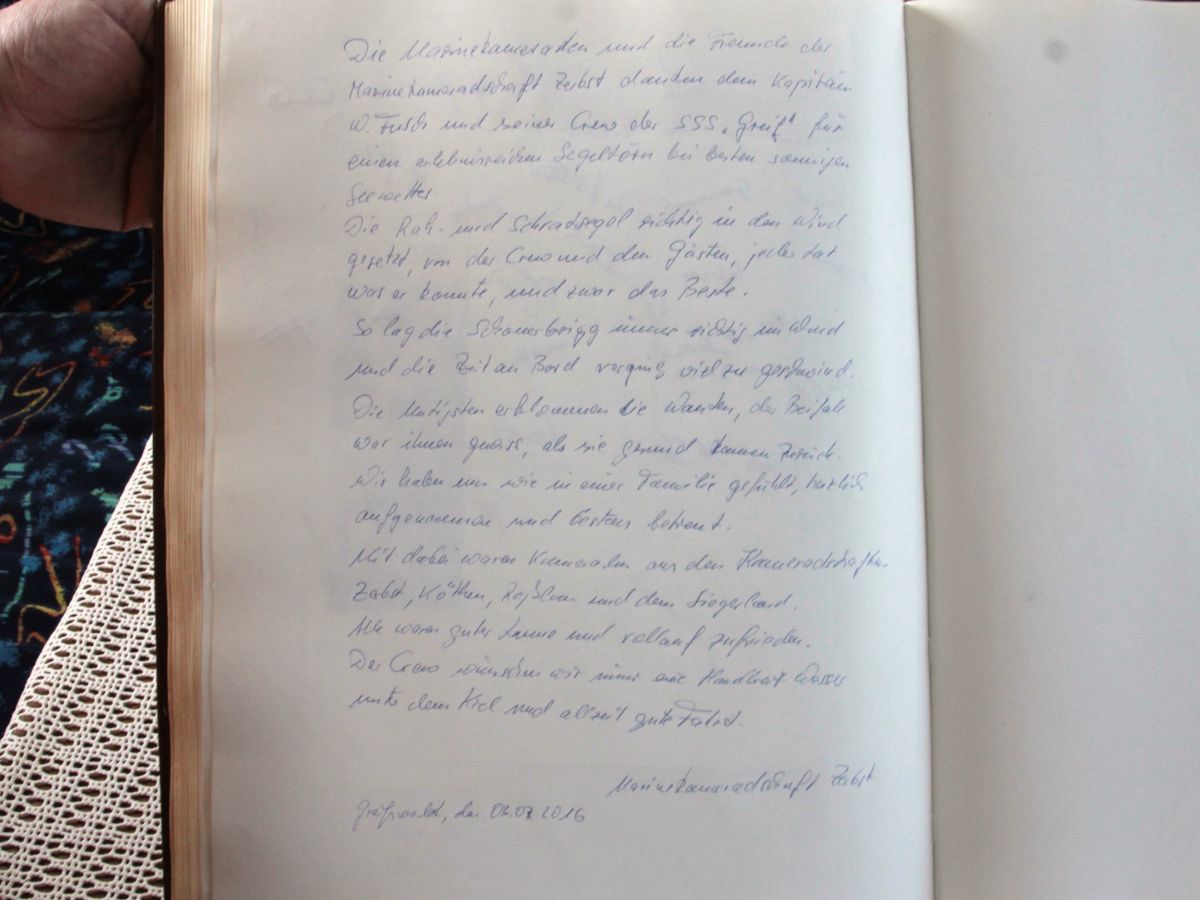 Die Marinekameraden und die Freunde der
Marinekameradschaft Zerbst danken dem Kapitän
W. Fusch und seiner Crew der SSS „Greif“ für
einen erlebnisreichen Segeltörn bei besten sonnigen
Seewetter.
Die Rah- und Schratsegel richtig in den Wind
gesetzt, von der Crew und den Gästen, jeder tat
was er konnte, und zwar das Beste.
So lag die Schonerbrigg immer richtig im Wind
und die Zeit an Bord verging viel zu geschwind.
Die Mutigsten erklommen die Wanten, der Beifall
war ihnen gewiss, als sie gesund kamen zurück.
Wir haben uns wie in einer Familie gefühlt, herzlich
aufgenommen und bestens betreut.
Mit dabei waren Kameraden aus den Kameradschaften
Zerbst, Köthen, Roßlau und dem Siegerland.
Alle waren guter Laune und vollauf zufrieden.
Der Crew wünschen wir immer eine Handbreit Wasser
unter dem Kiel und allzeit gute Fahrt.
Marinekameradschaft Zerbst
Greifswald, den 2016